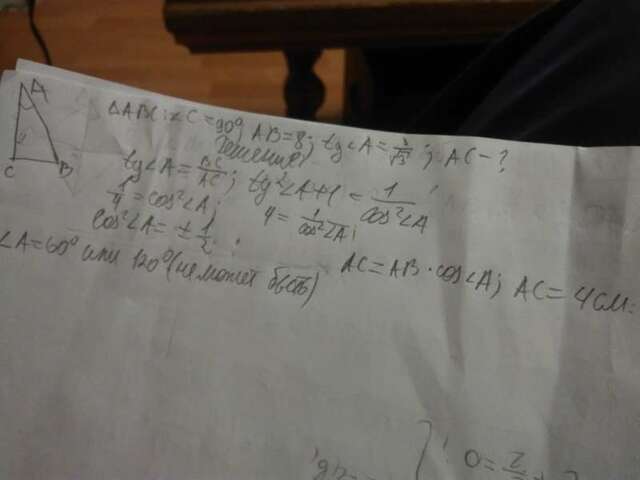 A
C
B
ΔABC: ∠C = 90°, AB = 8; tg∠A = 1/√3; AC - ?
Решение:
tg∠A = BC/AC; tg²∠A+1 = 1/cos²∠A;
1/4 = cos²∠A; 4 = 1/cos²∠A;
cos²∠A = ± 1/2;
∠A = 60° или 120° (не может быть)
AC = AB · cos∠A; AC = 4 см.